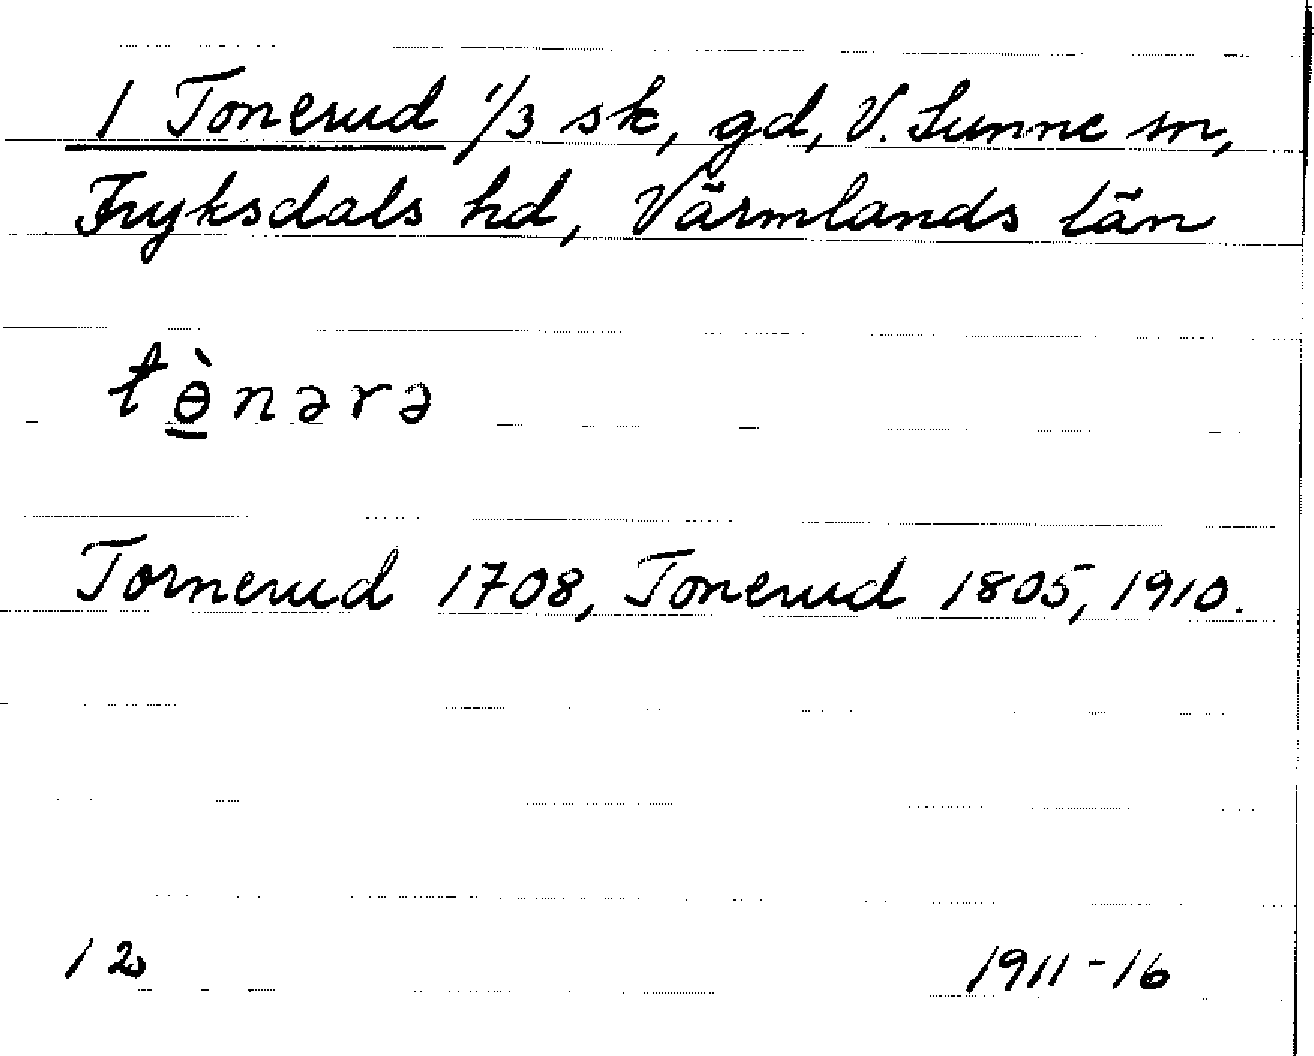 1 Tonerud 1/3 sk, gd, V. Sunne sn,
Fryksdals hd, Värmlands län
tɵ̀nərə
Tornerud 1708, Tonerud 1805, 1910.
12
1911-16